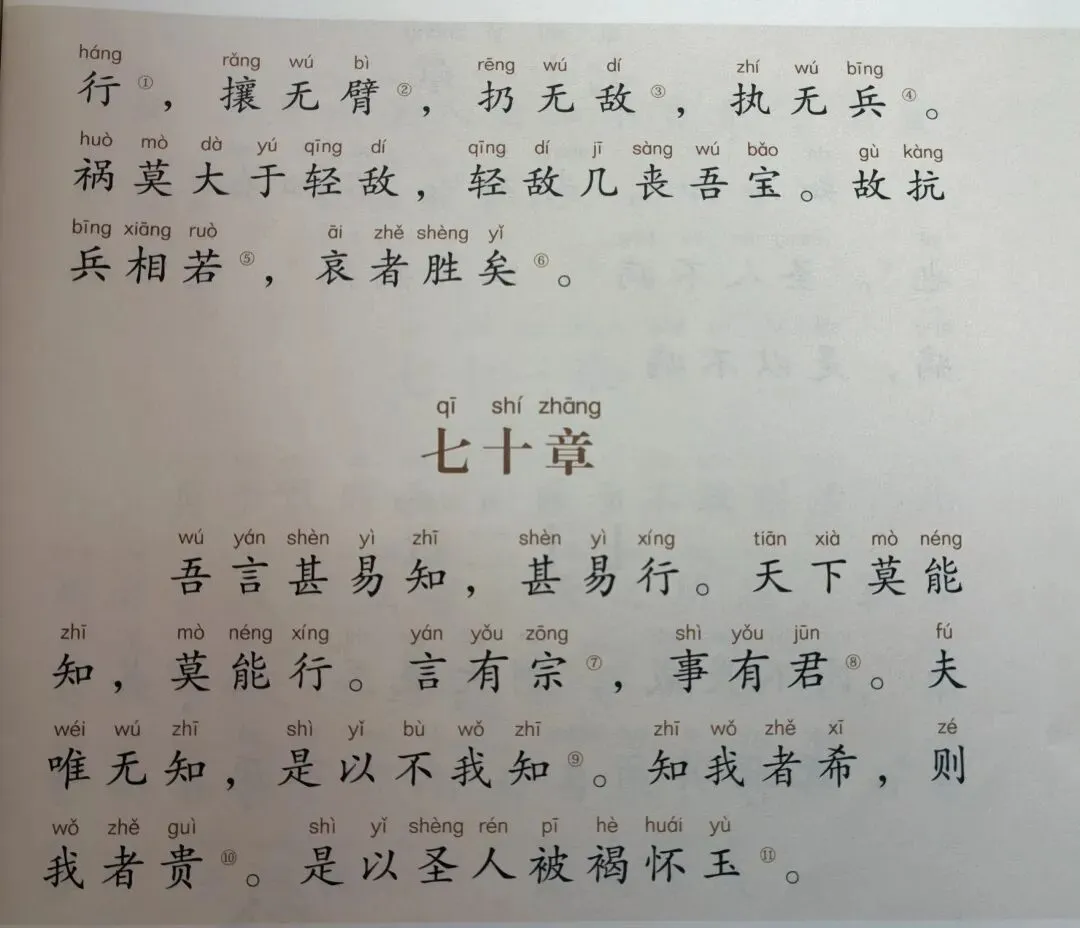 háng rǎng wú bì rēng wú dí zhí wú bīng
行①，攘无臂②，扔无敌③，执无兵④。
huò mò dà yú qīng dí qīng dí jī sàng wú bǎo gù kàng
祸莫大于轻敌，轻敌几丧吾宝。故抗
bīng xiāng ruò āi zhě shèng yǐ
兵相若⑤，哀者胜矣⑥。
qī shí zhāng
七十章
wú yán shèn yì zhī shèn yì xíng tiān xià mò néng
吾言甚易知，甚易行。天下莫能
zhī mò néng xíng yán yǒu zōng shì yǒu jūn fú
知，莫能行。言有宗⑦，事有君⑧。夫
wéi wú zhī shì yǐ bù wǒ zhī zhī wǒ zhě xī zé
唯无知，是以不我知⑨。知我者希，则
wǒ zhě guì shì yǐ shèng rén pī hè huái yù
我者贵⑩。是以圣人被褐怀玉⑪。